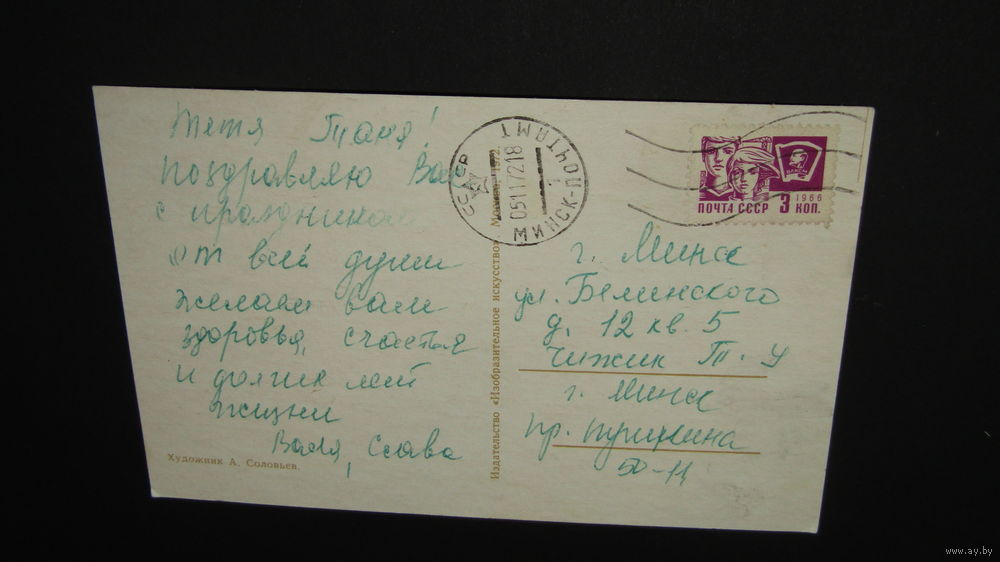 Тетя Таня!
Поздравляю Вас
с праздником
от всей души
желаем вам
здоровья, счастья
и долгих лет
жизни
Валя, Слава
Художник А. Соловьев.
Издательство «Изобразительное искусство». Москва. 1972.
СССР
05117218
МИНСК-ПОЧТАМТ
ВЛКСМ
1966
ПОЧТА СССР 3 КОП.
г. Минск
ул. Белинского
д. 12 кв. 5
Чижик Т. У
г. Минск
пр. Пушкина
50-11
www.ay.by